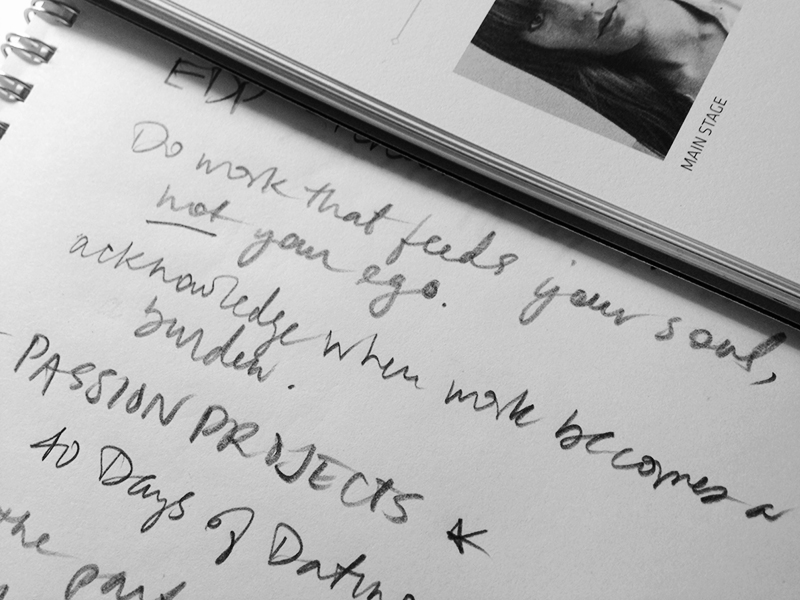 MAIN STAGE
EDP
Do work that feeds your soul,
not your ego.
acknowledge when work becomes a
burden.
- PASSION PROJECTS
40 Days of Dating
the